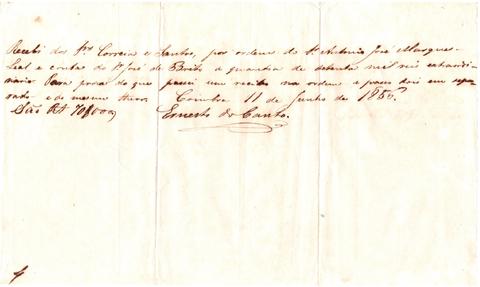 Recebi dos Srs Correia e Santos, por ordem do Sr Antonio José Marques
Leal e conta do Sr José de Brito a quantia de mil reis
Para prova do que passei um recibo na ordem e passo dois em sepa-
rado e do mesmo theor. Coimbra 11 de Junho de
São Rs
Ernesto do Canto.